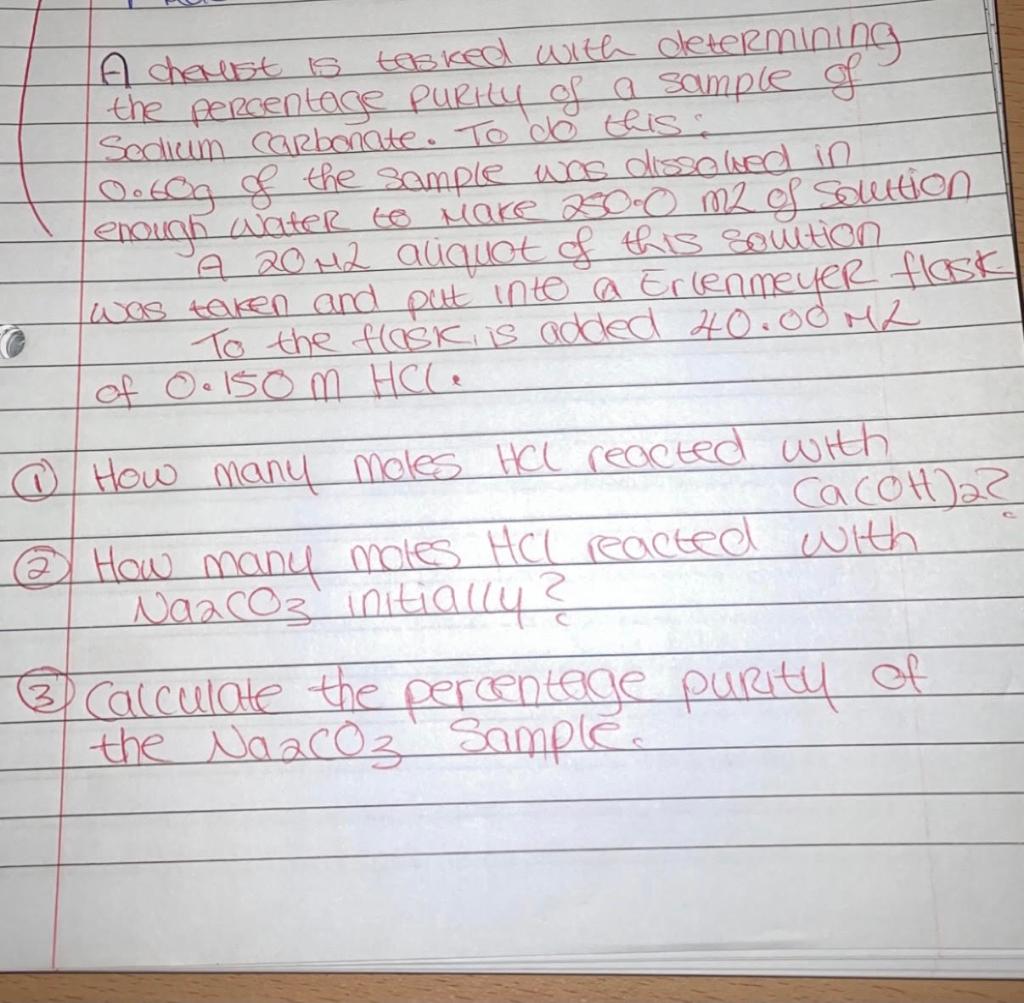 A chemist is tasked with determining
the percentage purity of a sample of
Sodium Carbonate. To do this:
0.60g of the sample was dissolved in
enough water to make 250.0 mL of solution
A 20 mL aliquot of this solution
was taken and put into a Erlenmeyer flask
To the flask, is added 40.00 mL
of 0.150 m HCl.
① How many moles HCl reacted with
Ca(OH)2?
② How many moles HCl reacted with
Na2CO3 initially?
③ Calculate the percentage purity of
the Na2CO3 Sample.